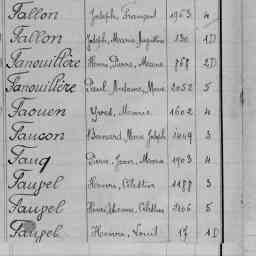 Fallon Joseph, François 1963 4
Fallon Joseph, Marie, Augustin 130 1D
Fanouillère Henri, Pierre, Marie 768 2D
Fanouillère Paul, Antoine, Marie 2052 5
Faouen Yves, Marie 1602 4
Faucon Bernard, Marie, Joseph 1049 3
Fauq Pierre, Jean, Marie 1903 4
Faupel Henri, Célestin 1188 3
Faupel Henri, Célestin 2106 5
Faupel Henri, Louis 17 1D